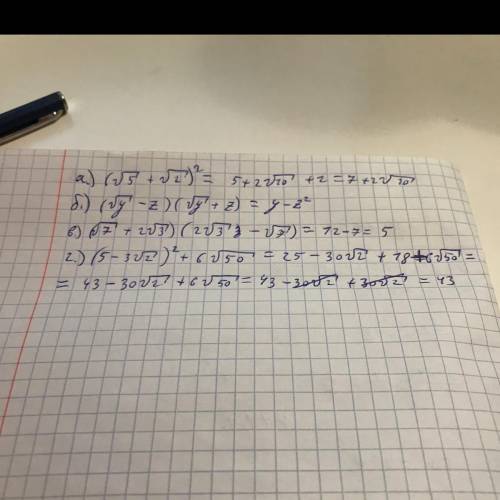 а.) (√5 + √2)² = 5+2√10 + 2 = 7+2√10
б.) (√y - z)(√y + z) = y - z²
в.) (√7 + 2√3)(2√3 - √7) = 12-7 = 5
г.) (5-3√2)² + 6√50 = 25 - 30√2 + 18 + 6√50 =
= 43 - 30√2 + 6√50 = 43 - 30√2 + 30√2 = 43